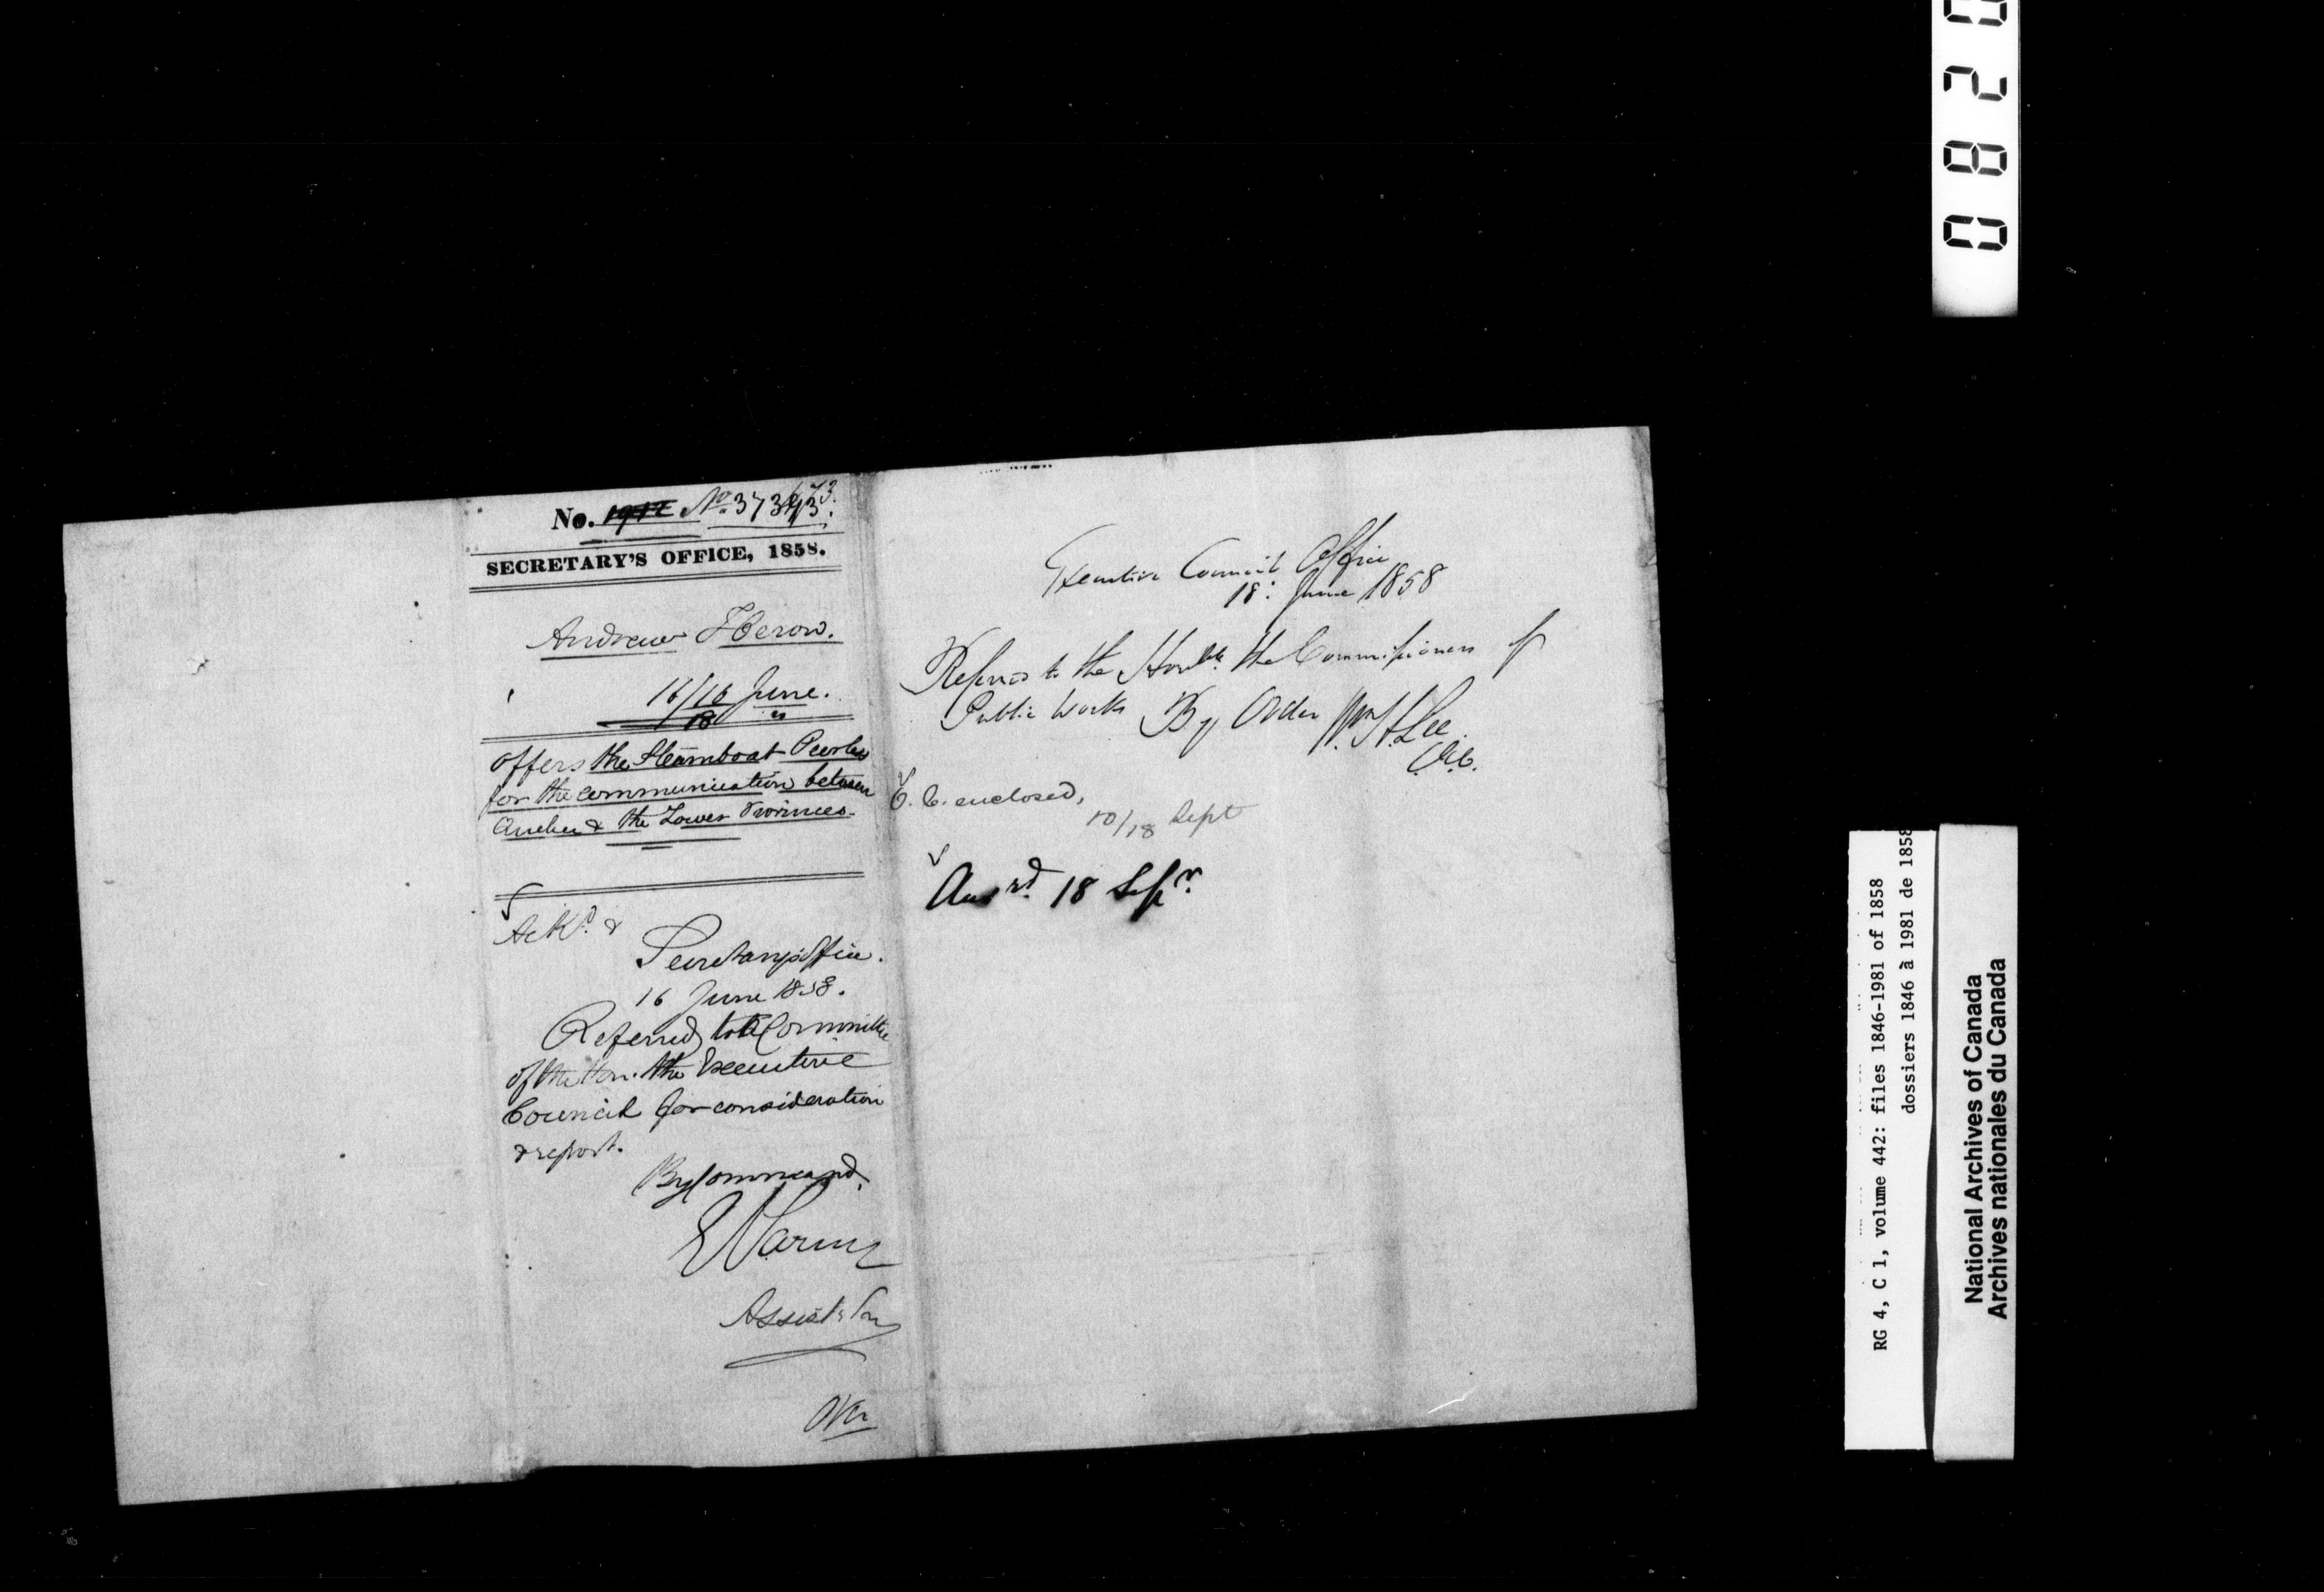 No. 1912 No. 37
SECRETARY'S OFFICE, 1858.
Andrew Heron.
16/16 June.
18 "
offers the Steamboat Peerless
for the communication between
Quebec & the Lower Provinces.
Ackd. &
Secretary's Office.
16 June 1858.
Referred to the Committee
of the Hon. the Executive
Council for consideration
& report.
By Command,
E Parent
Assist. Secy
Over
Executive Council Office
18: June 1858
Referred to the Honble. the Commissioners of
Public Works By Order Wm H Lee
C.E.C.
E. C. enclosed,
10/18 Sept
Ansrd. 18 Sepr.
0820
RG 4, C 1, volume 442: files 1846-1981 of 1858
dossiers 1846 à 1981 de 1858
National Archives of Canada
Archives nationales du Canada